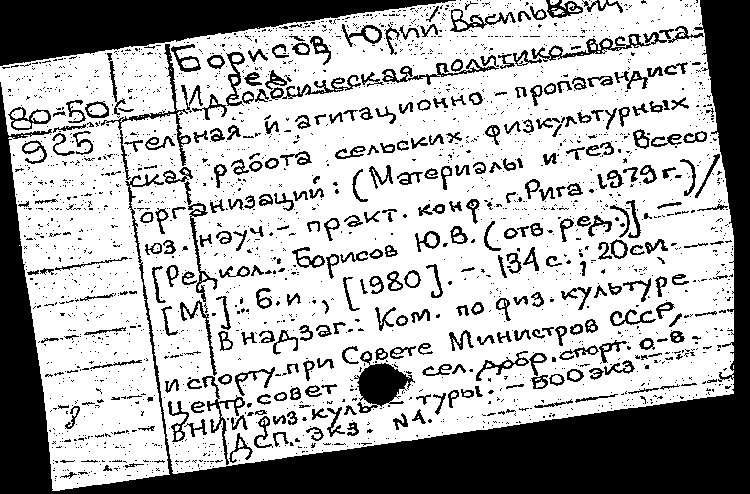 Борисов Юрий Васильевич,
ред.
Идеологическая, политико-воспита-
80-50с
925
тельная и агитационно-пропагандист-
ская работа сельских физкультурных
организаций: (Материалы и тез. Всесо-
юз. науч.-практ. конф. г. Рига. 1979 г.) /
[Редкол.: Борисов Ю.В. (отв. ред.)]. —
[М.]: Б.и., [1980]. — 134 с.; 20 см.
В надзаг.: Ком. по физ. культуре
и спорту при Совете Министров СССР,
Центр. совет сел. добр. спорт. о-в.
ВНИИ физ. культуры. — 500 экз.
ДСП. Экз. N1.